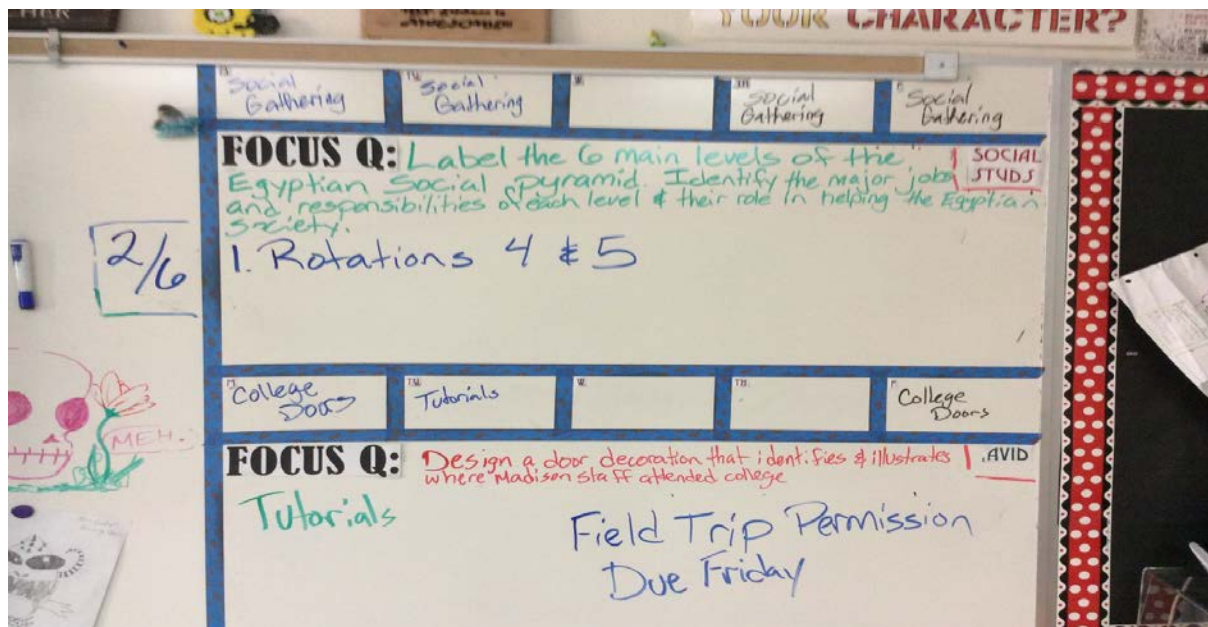 YOUR CHARACTER?
Social Gathering
Social Gathering
Social Gathering
Social Gathering
FOCUS Q: Label the 6 main levels of the
Egyptian Social pyramid. Identify the major jobs
and responsibilities of each level & their role in helping the Egyptian
society.
SOCIAL
STUDS
2/6
1. Rotations 4 & 5
M
College
Doors
TU.
Tutorials
W.
TH.
F
College
Doors
MEH.
FOCUS Q: Design a door decoration that identifies & illustrates
where Madison staff attended college
.AVID
Tutorials
Field Trip Permission
Due Friday